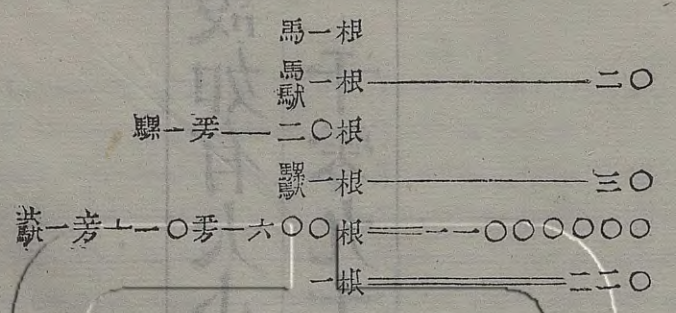 馬一根
馬馱一根—二〇
騾一平方—二〇根
騾馱一根—三〇
共馱一立方⊥一〇平方—六〇〇根＝一一〇〇〇〇〇〇
一根＝二二〇